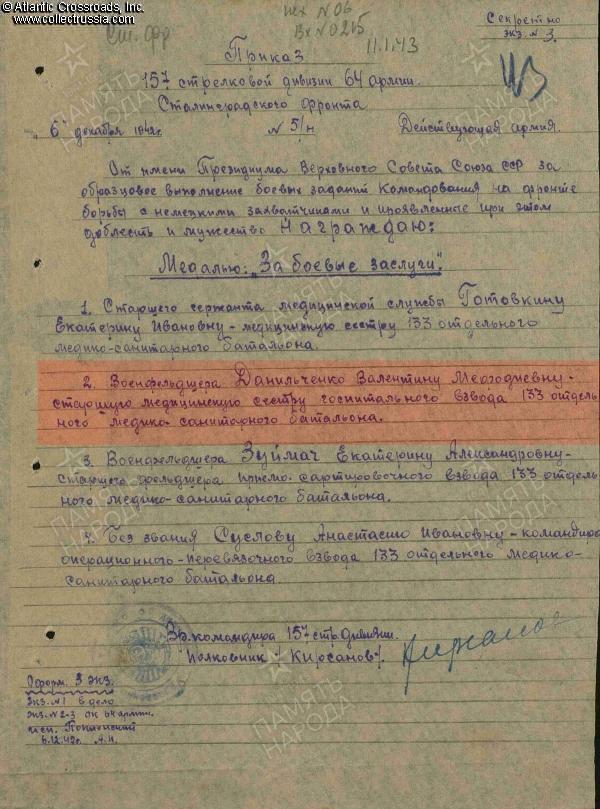 © Atlantic Crossroads, Inc.
www.collectrussia.com
исх №06
Вх №0215
11.1.43
Секретно
экз. № 3.
Приказ
157 стрелковой дивизии 64 армии.
Сталинградского фронта
"6" декабря 1942г. № 5/н Действующая армия.
От имени Президиума Верховного Совета Союза ССР за
образцовое выполнение боевых заданий командования на фронте
борьбы с немецкими захватчиками и проявленные при этом
доблесть и мужество Награждаю:
Медалью: „За боевые заслуги".
1. Старшего сержанта медицинской службы Готовкину
Екатерину Ивановну - медицинскую сестру 133 отдельного
медико-санитарного батальона.
2. Военфельдшера Данильченко Валентину Мефодиевну -
старшую медицинскую сестру госпитального взвода 133 отдель
ного медико-санитарного батальона.
3. Военфельдшера Зуймач Екатерину Александровну -
старшего фельдшера приемо-сортировочного взвода 133 отдель
ного медико-санитарного батальона.
4. Без звания Суслову Анастасию Ивановну - командира
операционного-перевязочного взвода 133 отдельного медико-
санитарного батальона.
Зв. командира 157 стр. дивизии.
Полковник - Кирсанов/.
Оформ. 3 экз.
Экз. №1 в дело
Экз. №2-3 ОК 64 армии.
6.12.42г.
ПАМЯТЬ
НАРОДА
ПАМЯТЬ
НАРОДА
ПАМЯТЬ
НАРОДА
ПАМЯТЬ
НАРОДА
ПАМЯТЬ
НАРОДА